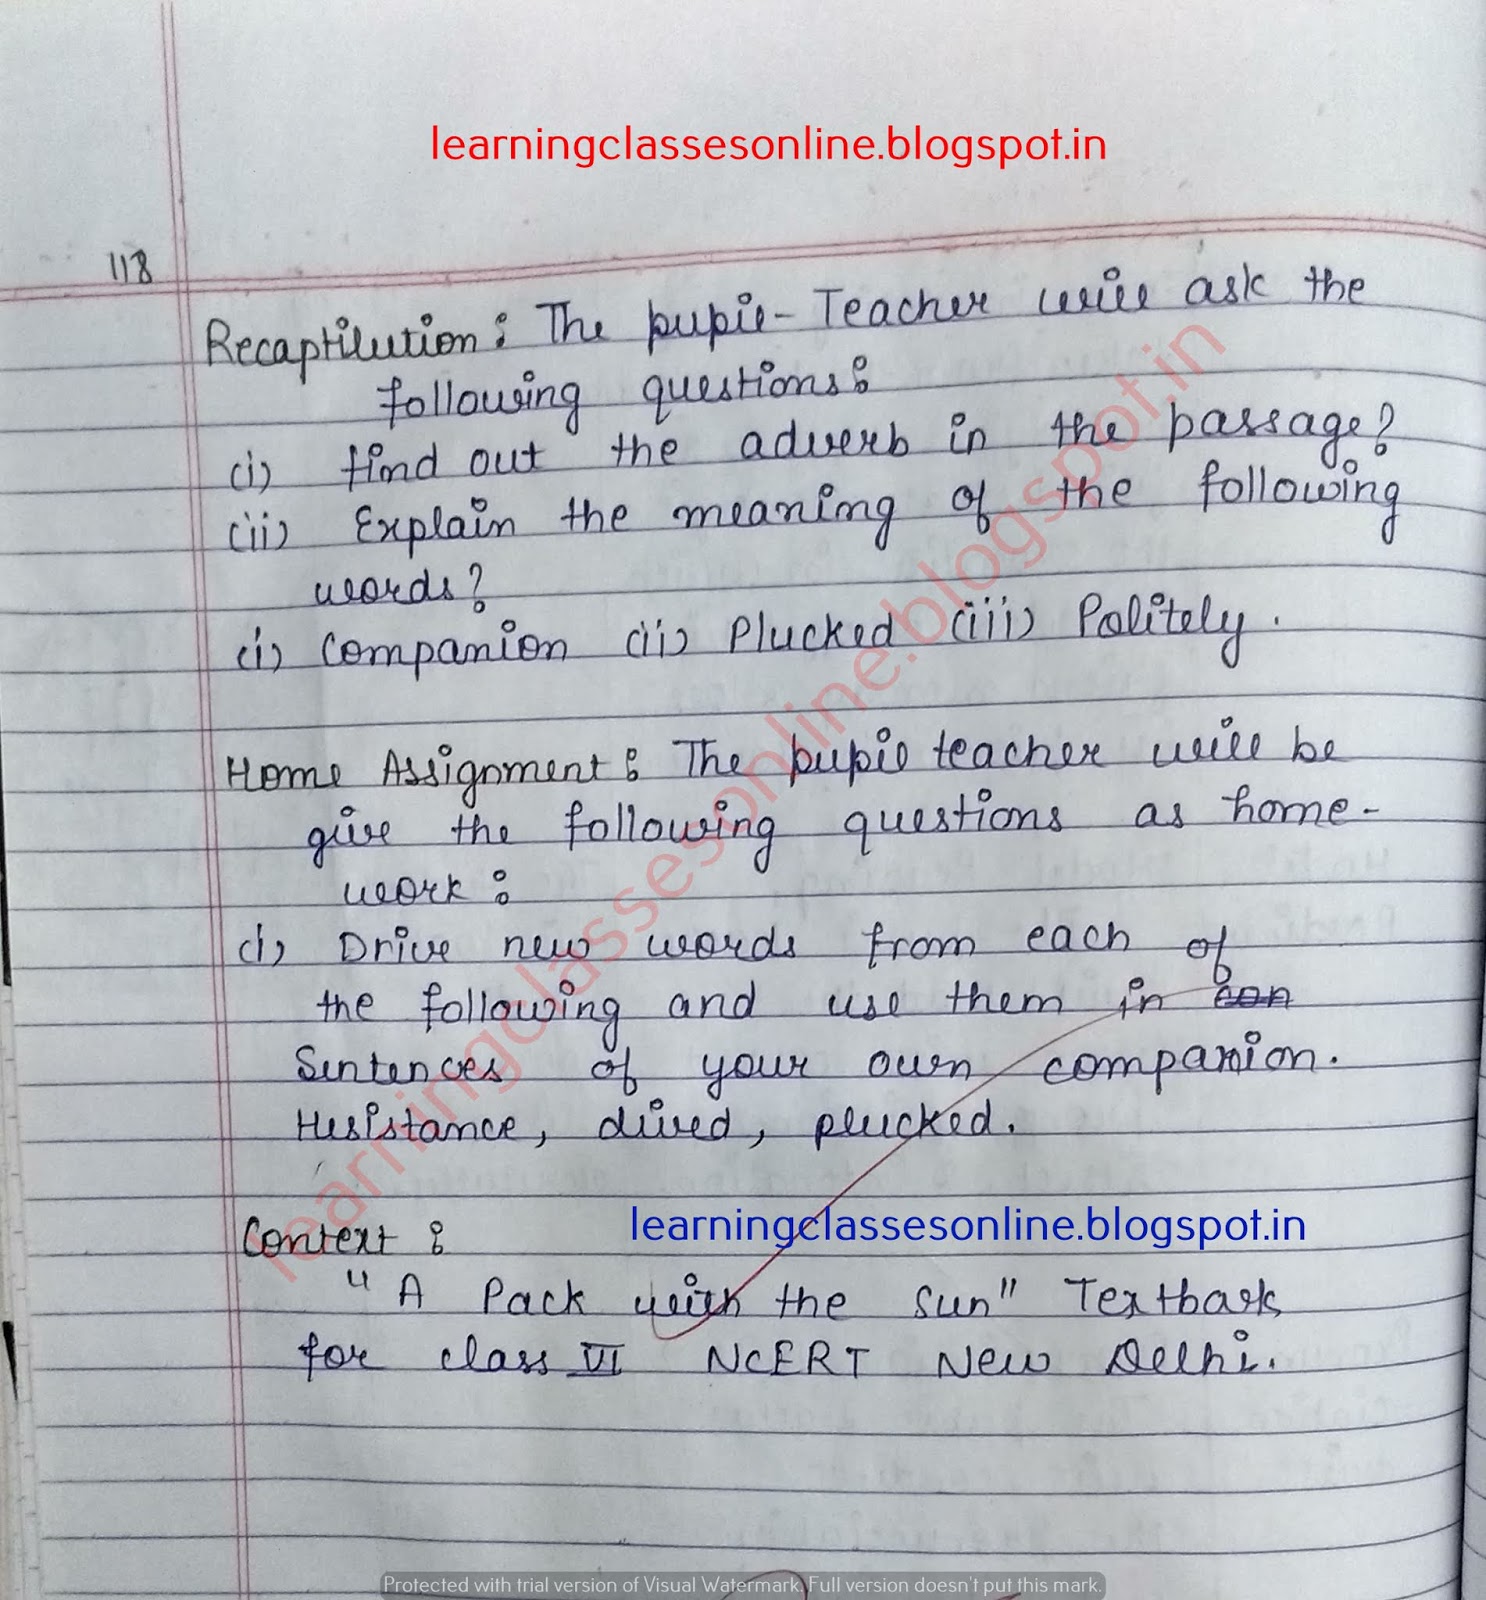 learningclassesonline.blogspot.in
118
Recaptilution : The pupil-Teacher will ask the
following questions :
(i) find out the adverb in the passage?
(ii) Explain the meaning of the following
words?
(i) Companion (ii) Plucked (iii) Politely.
Home Assignment : The pupil teacher will be
give the following questions as home-
work :
(i) Drive new words from each of
the following and use them in con
Sentences of your own companion.
Hesistance, dived, plucked.
Context :
learningclassesonline.blogspot.in
"A Pack with the Sun" Textbark
for class VI NCERT New Delhi.
learningclassesonline.blogspot.in
Protected with trial version of Visual Watermark. Full version doesn't put this mark.